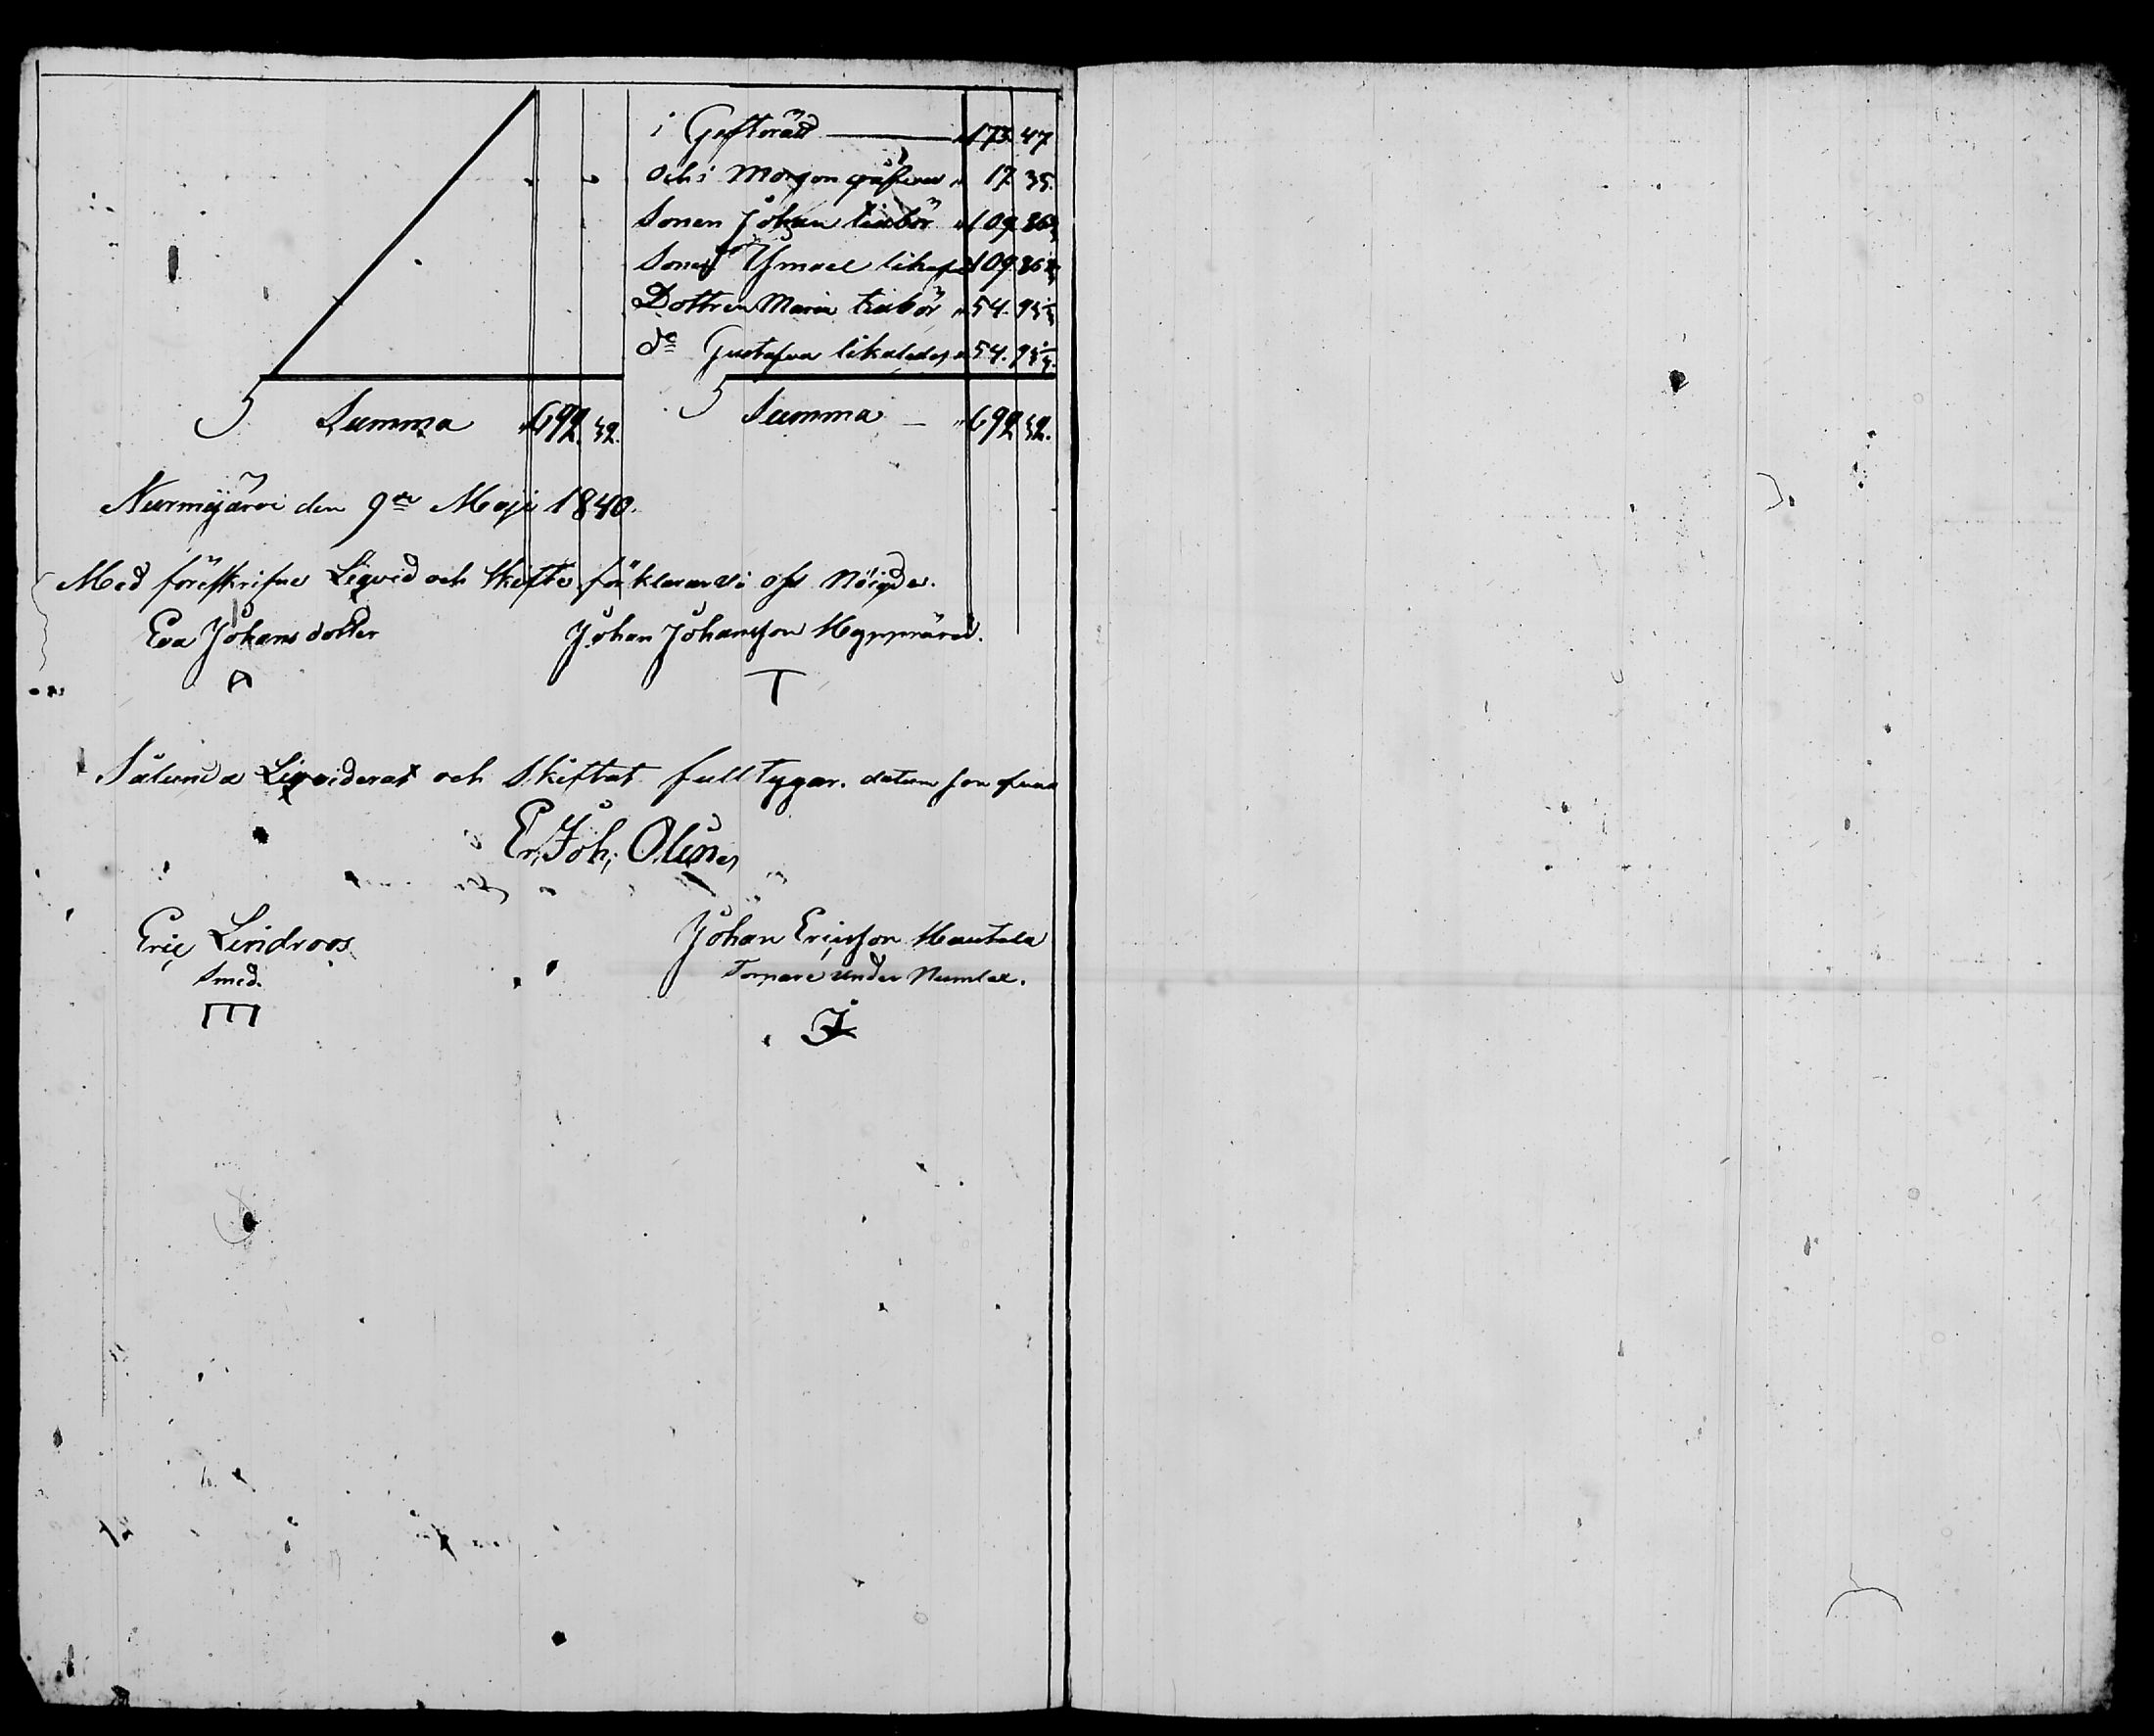 i Gifto rätt — " 173. 47
och i Morgon gåfva " 17. 35.
Sonen Johan tilabör " 109. 86 2/3
Sonen Ismael likaså " 109. 86 2/3
Dottren Maria tilabör " 54. 93 1/3
do Gustafva likaledes " 54. 93 1/3.
Summa " 692. 32. Summa — " 692 32.
Nurmijärvi den 9de Maji 1840.
Med föreskrifne Liqvid och Skifte förklara vi oss Nöigde.
Eva Johans dotter Johan Johansson
T
Sålunda Liqviderat och Skiftat fulltygar. datum som ofvan
Er, Joh;
Eric Lindroos Johan Ericsson Hautala
Smed. Torpare under Numlax.